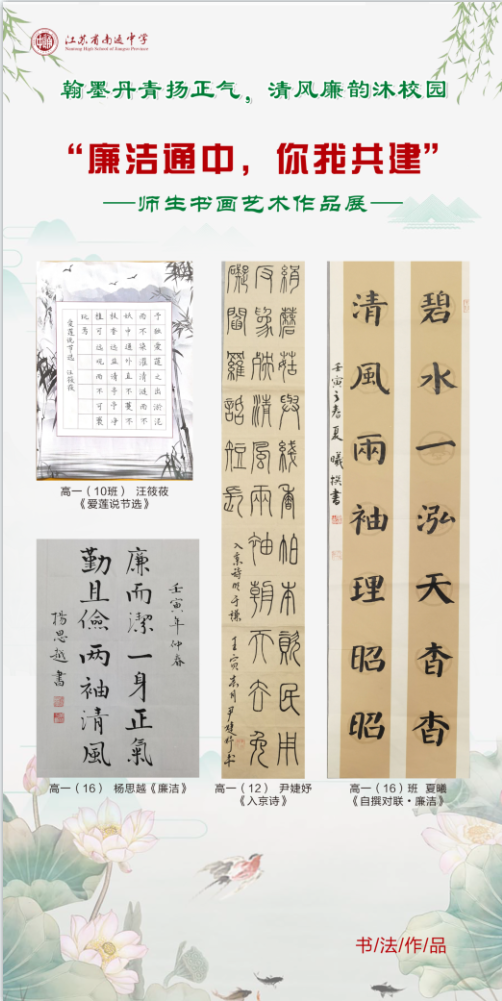 江苏省南通中学
Nantong High School of Jiangsu Province
翰墨丹青扬正气，清风廉韵沐校园
“廉洁通中，你我共建”
—师生书画艺术作品展—
予独爱莲之出淤泥
而不染濯清涟而不
妖中通外直不蔓不
枝香远益清亭亭净
植可远观而不可亵
玩焉
爱莲说节选 汪莜莜
高一（10班） 汪莜莜
《爱莲说节选》
壬寅年仲春
廉而潔一身正氣
勤且儉两袖清風
楊思越書
高一（16） 杨思越《廉洁》
絹蘑菇與綫香帕本資民用
反為殃清風兩袖朝天去免
話短長
入京詩明于謙
高一（12） 尹婕妤
《入京诗》
碧水一泓天杳杳
清風兩袖理昭昭
壬寅立春夏曦撰書
高一（16）班 夏曦
《自撰对联·廉洁》
书/法/作/品